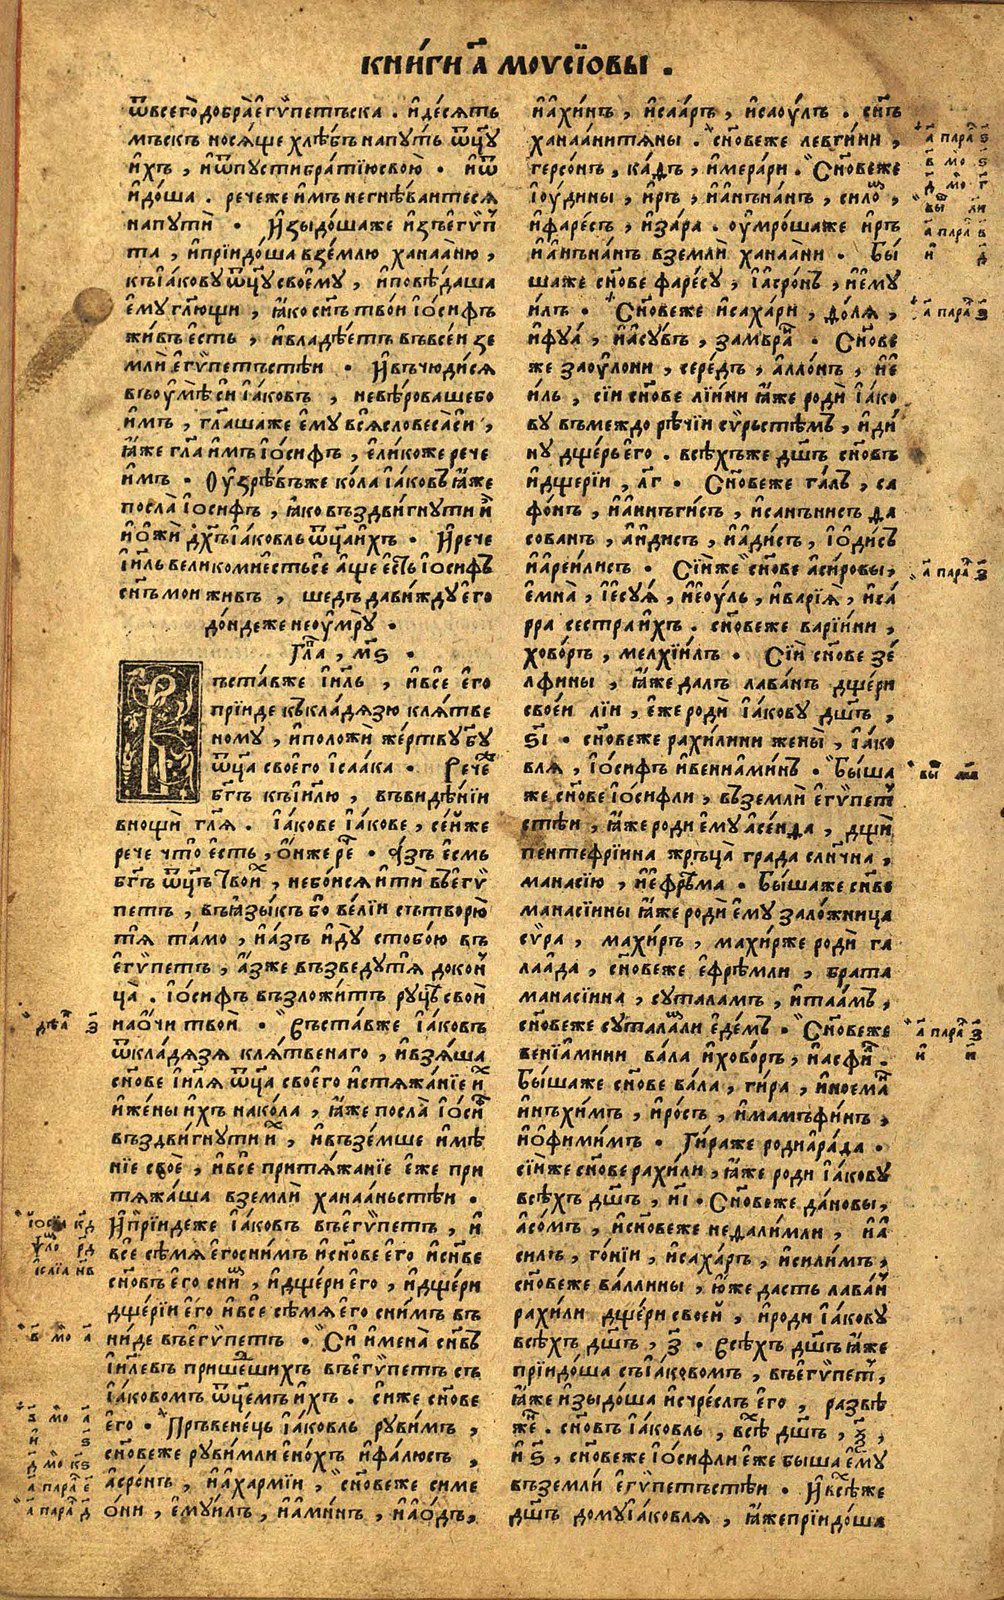 КНИ́ГИ А҃ МОѴСЇОВЫ .
ѿвсего̀ добра̀ є҆гѷпетьска . и҆де́сѧть
мъскъ носѧ́ще хлѣ́бъ напꙋ́ть ѿцꙋ҃
и҆хъ , и҆ѿпꙋсти братїю свою̀ . и҆ѿ
и҆до́ша . речеже и҆мъ негнѣ́ваитесѧ
напꙋтѝ . И҆зыдо́шаже и҆зъ є҆гѵ́п
та , и҆прїидо́ша взе́млю ханаа́ню ,
къ і҆а́ковꙋ ѿцꙋ҃ своемꙋ , и҆повѣ́даша
є҆мꙋ гл҃ющи , ꙗ҆́ко сн҃ъ тво́и і҆о́сифъ
жи́въ є҆сть , и҆владѣ́етъ въвсе́и зе
млѝ є҆гѵ́петьстѣи . И҆въчюди́сѧ
въоу҆мѣ̀си і҆а́ковъ , невѣ́ровашебо
и҆мъ , гл҃ашаже є҆мꙋ всѧ̀ словеса̀сѝ ,
ꙗ҆́же гл҃а и҆мъ і҆о́сифъ , є҆ли́коже рече
и҆мъ . Оу҆зрѣ́въже ко́ла і҆а́ковъ ꙗ҆́же
посла̀ і҆о́сифъ , ꙗ҆́ко въздви́гнꙋти и҆̀
и҆ о҆жѝ дх҃ъ і҆а́ковль ѿца҃ и҆́хъ . И҆рече
і҆и҃ль великомиестьсе а҆́ще є҆сть і҆о́сифъ
сн҃ъ мои живъ , шедъ дави́ждꙋ є҆го
до́ндеже неоу҆́мрꙋ .
Гл҃а , м҃ѕ .
Въста́вже і҆и҃ль , и҆всѐ є҆го
прїиде къ кла́дѧзю клѧ́тве
номꙋ , и҆положи же́ртвꙋ бг҃ꙋ
ѿца҃ своего̀ і҆саа́ка . Рече́
бг҃ъ къ і҆и҃лю , въвидѣ́нїи
внощѝ гл҃ѧ . І҆а́кове і҆а́кове , се́нже
рече что̀ є҆́сть , о҆́нже ре҇ . А҆́зъ є҆смь
бг҃ъ ѿц҃ъ твои́х , небо́исѧ и҆тѝ въ є҆гѵ́
петъ , въ ꙗ҆зы́къ бо вели́и сътворю̀
тѧ̀ та́мо , и҆а́зъ и҆дꙋ̀ стобо́ю въ
є҆гѵ́петъ , а҆́зже възведꙋтѧ̀ докон
ца̀ . І҆о́сифъ възложи́тъ рꙋцѣ̀ свои̑
нао҆́чи твои̑ . Въста́вже і҆а́ковъ
ѿкла́дѧзѧ клѧ́твенаго , и҆взѧ́ша
сн҃ове і҆и҃лѧ ѿца҃ своего̀ и҆стѧжа́нїе и҆х
и҆ же́ны и҆́хъ нако́ла , ꙗ҆́же посла̀ і҆о́си
въздви́гнꙋти и҆х , и҆възе́мше и҆мѣ
нїе своѐ , и҆всѐ притѧ́жанїе є҆́же при
тѧжа́ша вземлѝ ханаа́ньстѣи .
И҆прїидеже і҆а́ковъ въ є҆гѵ́петъ , и҆
всѐ сѣ́мѧ є҆го сни́мъ и҆ сн҃ове є҆го̀ и҆ сн҃ве
сн҃овъ є҆го̀ сни , и҆дще́ри є҆го̀ , и҆дще́ри
дще́рїи є҆го̀ и҆всѐ сѣ́мѧ є҆го̀ сни́мъ въ
ни́де въ є҆гѵ́петъ . Си и҆мена̀ сн҃въ
і҆и҃левъ прише́шихъ въ є҆гѵ́петъ съ
і҆а́ковомъ ѿц҃емъ и҆́хъ . Сиже сн҃ове
є҆го . Пръвене́ць і҆а́ковль рꙋви́мъ ,
сн҃овеже рꙋви́мли є҆но́хъ и҆фалю́съ ,
а҆сро́нъ , и҆ахармі́и , сн҃овеже симе
о҆́ни , є҆мꙋи́лъ , и҆ами́нъ , и҆ао́дъ ,
и҆ахи́нъ , и҆саа́ръ , и҆саоу́лъ . сн҃ъ
ханаани́тѧны . сн҃овеже левгі́ини ,
герсо́нъ , ка́дъ , и҆мера́ри . Сн҃овеже
і҆оу́дины , и҆́ръ , и҆а҆нъна́нъ , сило́ ,
и҆фаре́съ , и҆за́ра . оу҆мро́шаже и҆́ръ
и҆а҆нъна́нъ вземлѝ ханаа́ни . Бы́
шаже сн҃ове фаре́сꙋ , і҆асро́нъ , и҆є҆мꙋ
и҆лъ . Сн҃овеже и҆саха́ри , до́лѧ ,
и҆фꙋа́ , и҆асꙋ́въ , замъра́ . Сн҃ове
же заоу́лони , сере́дъ , а҆лло́нъ , и҆є
и҆ль , сїи сн҃ове лїи́ни ꙗ҆́же родѝ і҆а́ко
вꙋ въмеждорѣ́чїи сѵ́рьстѣмъ , и҆ди́
нꙋ дще́рь є҆го . всѣ́хъже дш҃ъ сн҃овъ
и҆дще́рїи , л҃г . Сн҃овеже га́дъ , са
фо́нъ , и҆а҆ннъги́съ , и҆санъни́съ да
сованъ , а҆и҆ди́съ , и҆ади́съ , і҆оди́съ
и҆аре́илисъ . Сїи́же сн҃ове а҆си́ровы ,
є҆мна̀ , і҆есꙋа́ , и҆еоу́ль , и҆варі́ѧ , и҆са
рра сестра и҆́хъ . сн҃овеже варїи́ни ,
ховоръ , мелхїи́лъ . Сїи сн҃ове зе́
лфины , ꙗ҆́же далъ лава́нъ дще́ри
свое́и лїи , є҆́же родѝ і҆а́ковꙋ дш҃ъ ,
ѕ҃і . сн҃овеже рахи́лини жены̀ , і҆а́ко
влѧ , і҆о́сифъ и҆венїами́нъ . Бы́ша
же сн҃ове і҆о́сифли , въ землѝ є҆гѵ́пет
стѣи , ꙗ҆́же роди є҆мꙋ а҆се́нда , дщи
пентефрі́ина жръца̀ града сли́чна ,
манасі́ю , и҆ефре́ма . Бы́шаже сн҃ве
манасі́ины ꙗ҆́же родѝ є҆мꙋ зало́жница
сѵ́ра , махи́ръ , махи́рже родѝ га
лаа́да , сн҃овеже є҆фрѣ́мли , брата
манасі́ина , сꙋталамъ , и҆таа́мъ ,
сн҃овеже сꙋтала́мли є҆де́мъ . Сн҃овеже
венїами́ни ва́ла и҆хово́ръ , и҆асфи .
Бы́шаже сн҃ове ва́ла , ги́ра , и҆ноема
и҆нъхи́мъ , и҆ро́съ , и҆мамъфи́нъ ,
и҆о҆фими́мъ . Ги́раже роди а҆ра́да .
сїи́же сн҃ове рахи́ли , ꙗ҆́же роди і҆а́ковꙋ
всѣ́хъ дш҃ъ , и҃і . Сн҃овеже да́новы ,
а҆со́мъ , и҆сн҃овеже недали́мли , и҆а
силъ , го́нїи , и҆саха́ръ , и҆сили́мъ ,
сн҃овеже ва́ллины , ю҆́же дастъ лава́н
рахи́ли дще́ри свое́и , и҆роди і҆а́ковꙋ
всѣ́хъ дш҃ъ , з҃ . Всѣ́хъ дш҃ъ ꙗ҆́же
прїидо́ша съ і҆а́ковомъ , въ є҆гѵ́пет ,
ꙗ҆́же и҆зыдо́ша и҆счре́слъ є҆го , развѣ
же . сн҃овъ і҆а́ковль , всѣ дш҃ъ , ѯ҃ ,
и҆ ѕ҃ , сн҃овеже і҆о́сифли є҆же быша є҆мꙋ
въземлѝ є҆гѵ́петьстѣи . И҆всѣ́же
дш҃ъ домꙋ і҆а́ковлѧ , ꙗ҆́же прїидо́ша